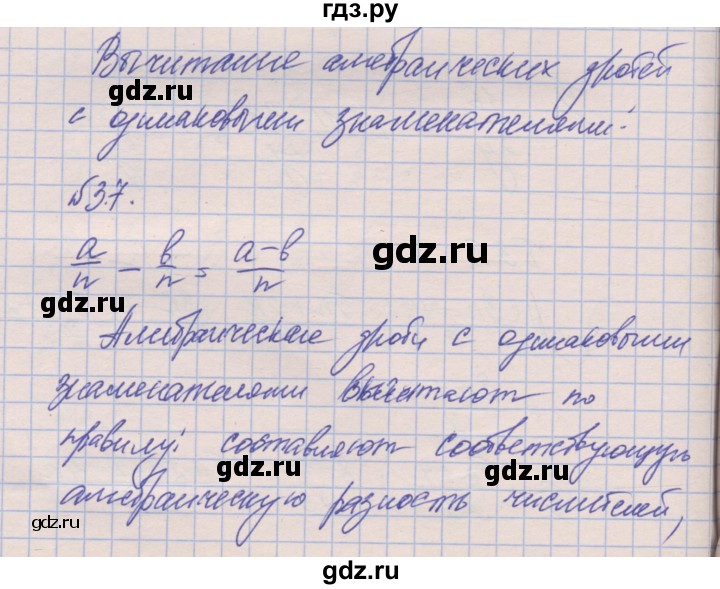 гдз.ру
Вычитание алгебраических дробей
gdz.ru
с одинаковыми знаменателями:
gdz.ru
№37.
a/n - в/n = a-в/n
gdz.ru
gdz.ru
Алгебраические дроби с одинаковыми
gdz.ru
знаменателями вычитают по
правилу: составляют соответствующую
gdz.ru
gdz.ru
алгебраическую разность числителей,
gdz.ru
gdz.ru